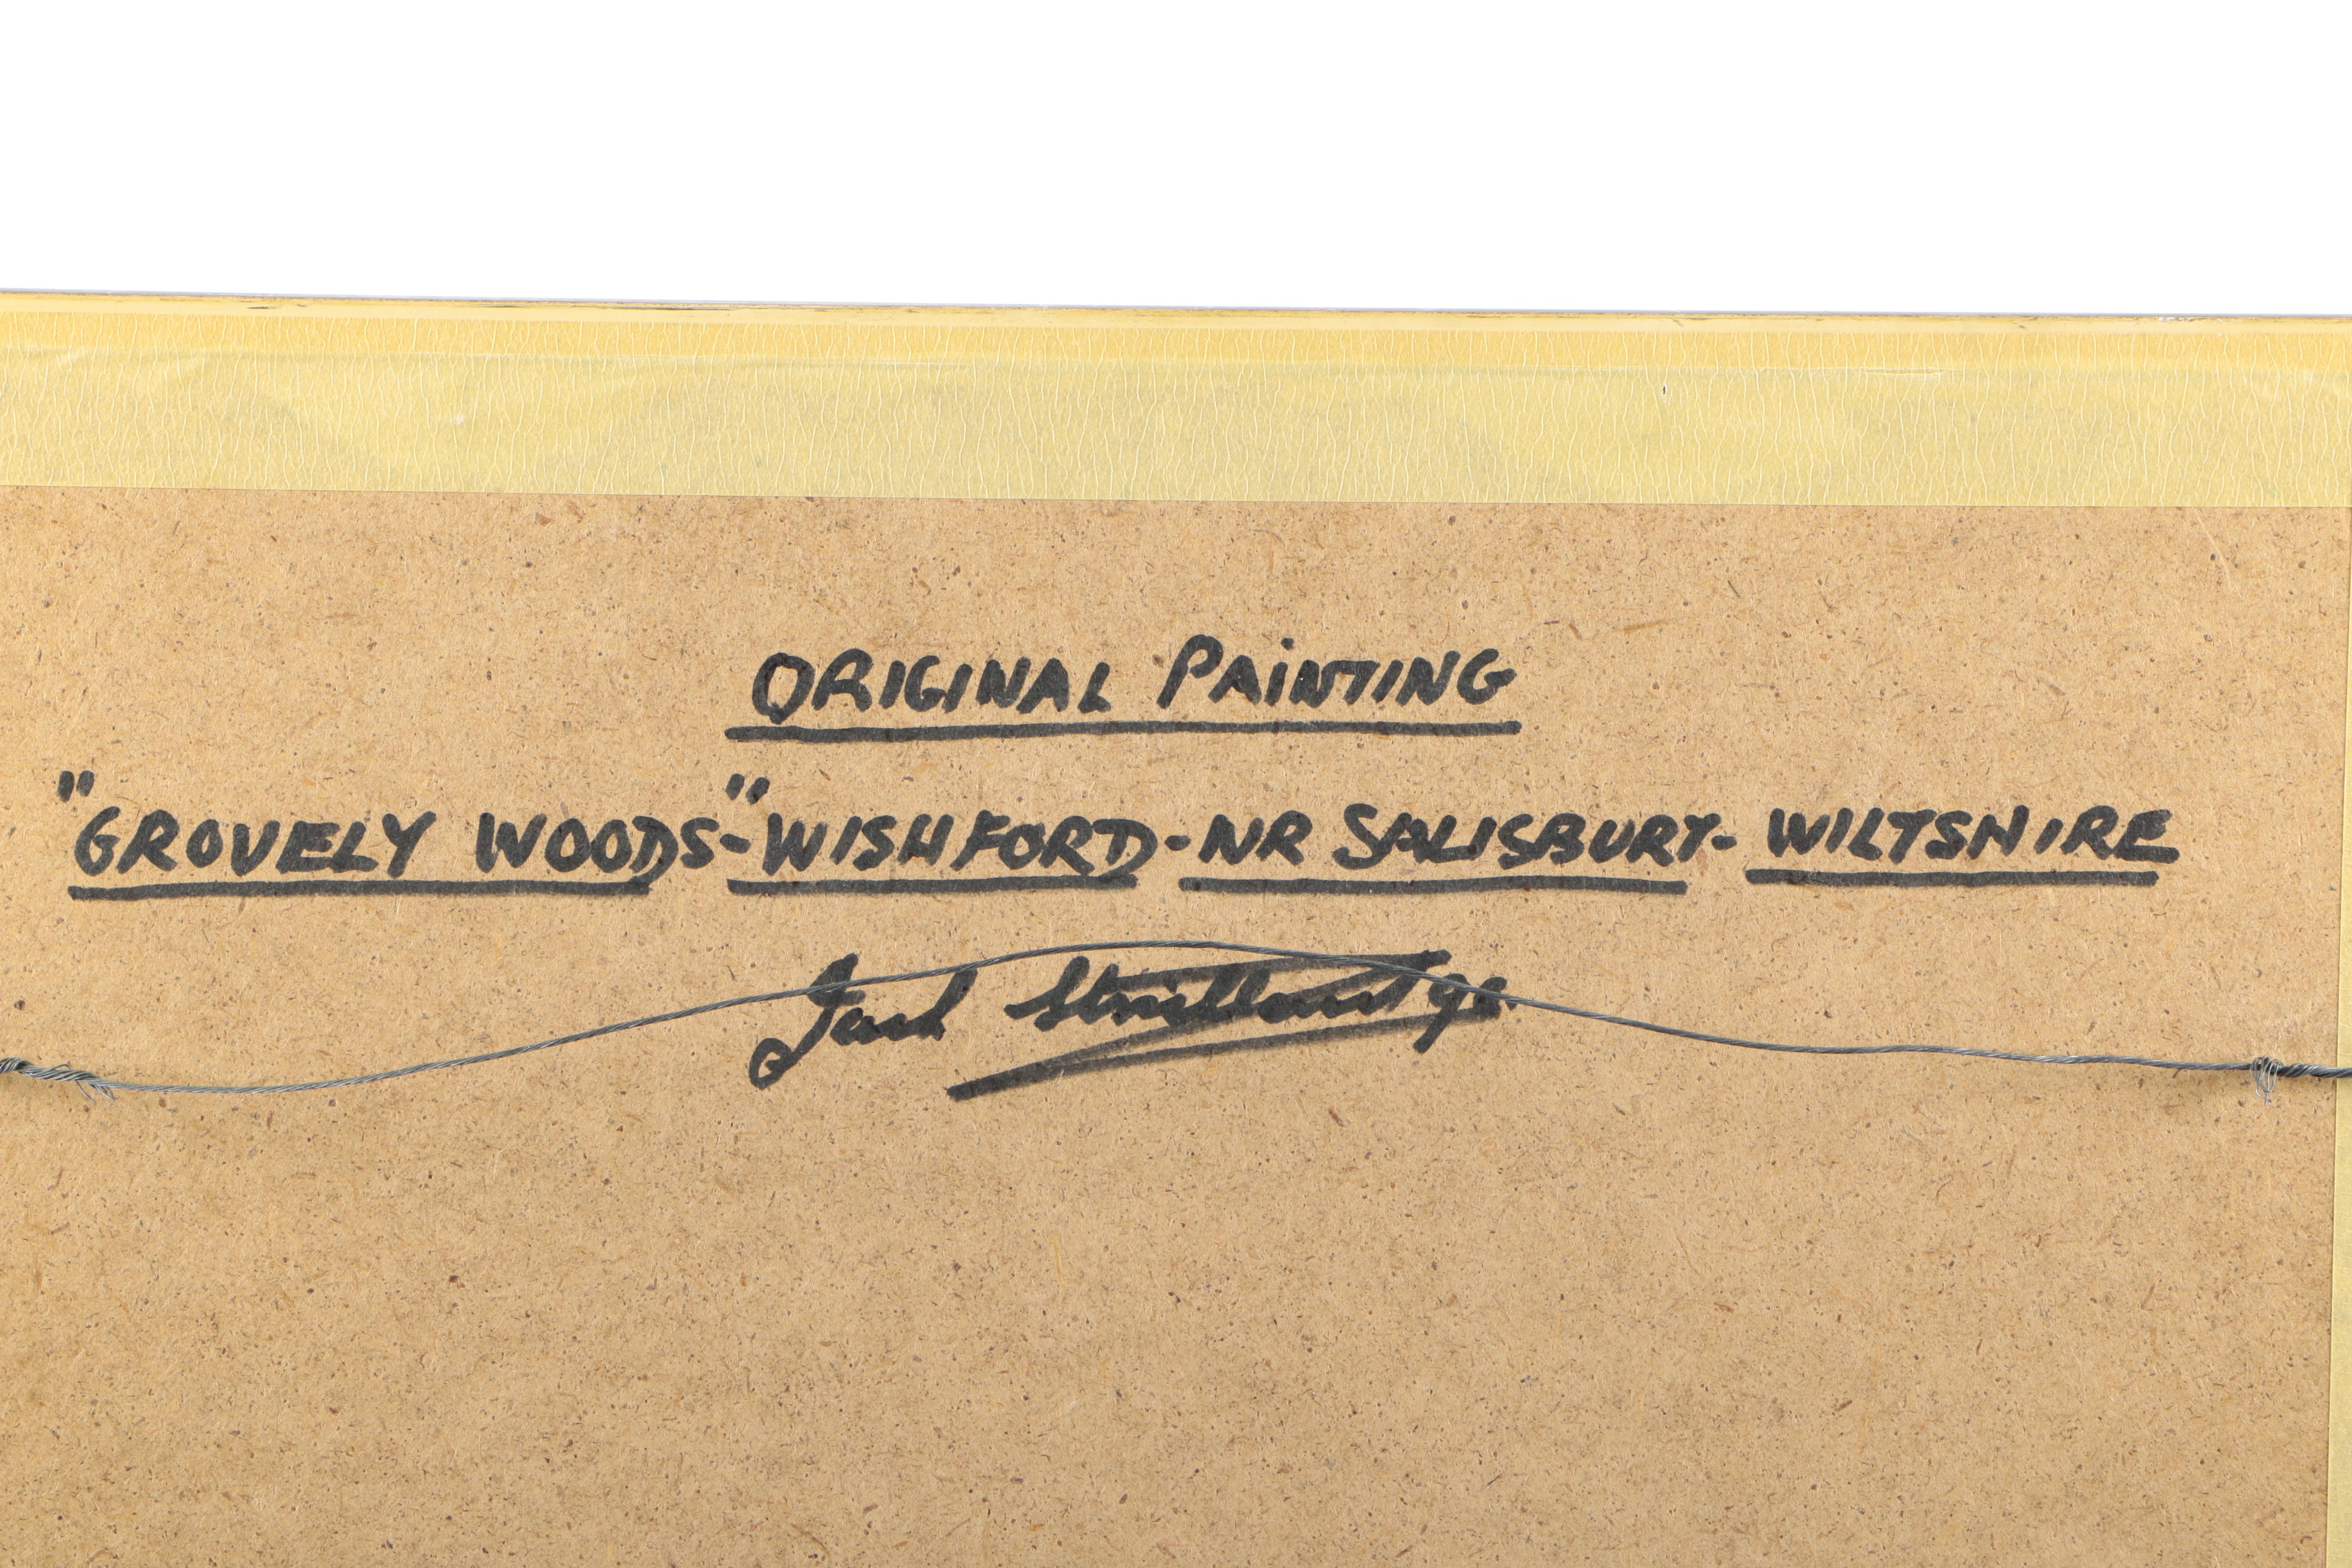 ORIGINAL PAINTING
"GROVELY WOODS-" WISHFORD-NR SALISBURY-WILTSHIRE
Jack